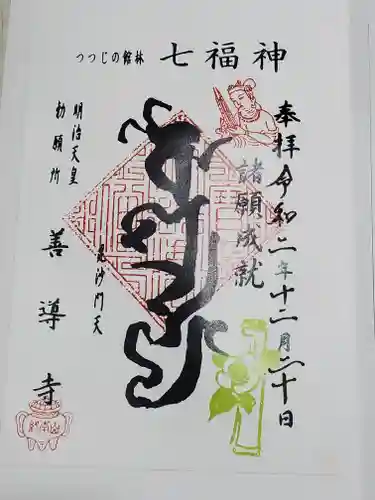 つつじの館林 七福神
奉拝 令和二年十二月二十日
諸願成就
毘沙門天
明治天皇
勅願所
善導寺